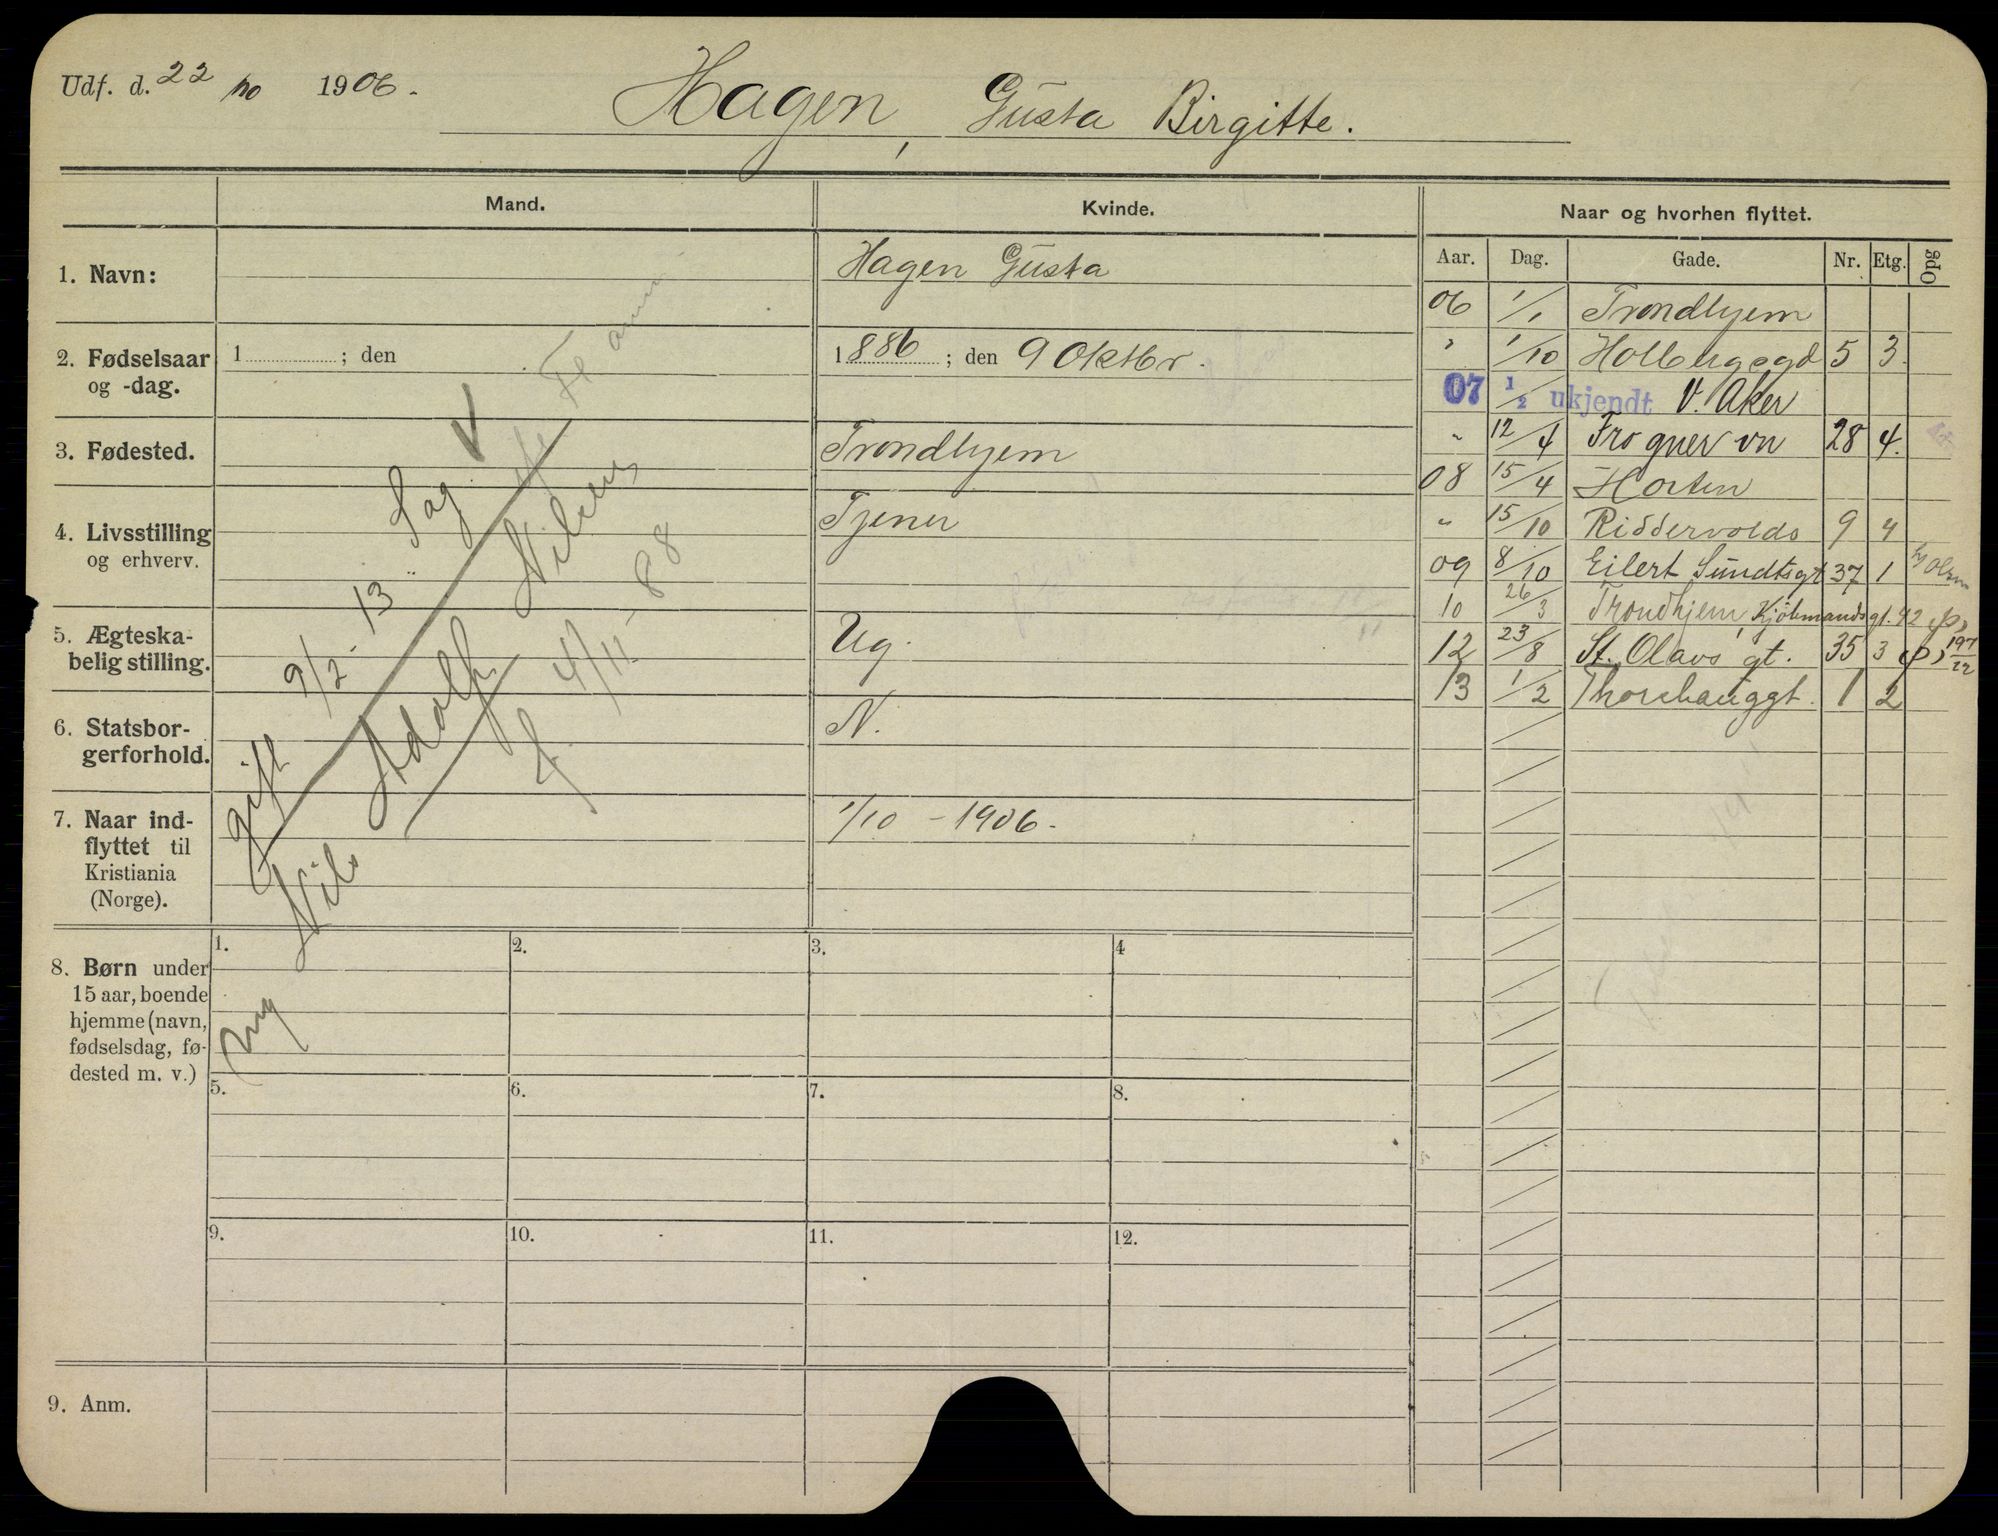 Udf. d. 22/10 1906.
Hagen, Gusta Birgitte.
Mand.
Kvinde.
Naar og hvorhen flyttet.
Aar. Dag. Gade. Nr. Etg. Opg
1. Navn:
Hagen Gusta
2. Fødselsaar
og -dag.
1 ; den
1886 ; den 9 Oktbr.
3. Fødested.
Trondhjem
4. Livsstilling
og erhverv.
Tjener
5. Ægteska-
belig stilling.
Ug.
6. Statsbor-
gerforhold.
N.
7. Naar ind-
flyttet til
Kristiania
(Norge).
1/10 - 1906.
gift 9/2 - 13 Sag.
Nils Adolf Nilsen
f. 4/11 - 88
06 1/1 Trondhjem
" 1/10 Holbergsgd 5 3.
07 1/2 ukjendt V. Aker
" 12/4 Frogner vn 28 4.
08 15/4 Horten
" 15/10 Riddervolds 9 4
09 8/10 Eilert Sundtsgt 37 1 Olsen
10 26/3 Trondhjem, Kjöbmandsgt. 42
12 23/8 St. Olavs gt. 35 3 197/22
13 1/2 Thorshauggt. 1 2
8. Børn under
15 aar, boende
hjemme (navn,
fødselsdag, fø-
dested m. v.)
1. 2. 3. 4
5. 6. 7. 8.
9. 10. 11. 12.
9. Anm.